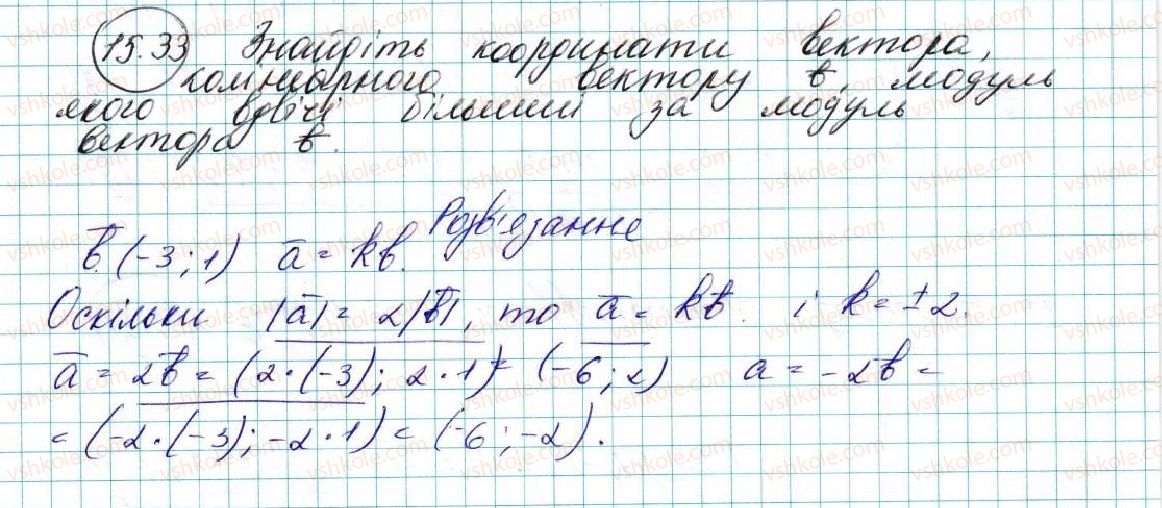 15.33 Знайдіть координати вектора,
колінеарного вектору b̄, модуль
якого вдвічі більший за модуль
вектора b̄.
Розв'язання
b̄(-3;1) ā = kb̄.
Оскільки |ā| = 2|b̄|, то ā = kb̄. і k = ±2.
ā = 2b̄ = (2·(-3); 2·1) = (-6;2) a = -2b̄ =
= (-2·(-3); -2·1) = (-6;-2).
vshkole.com